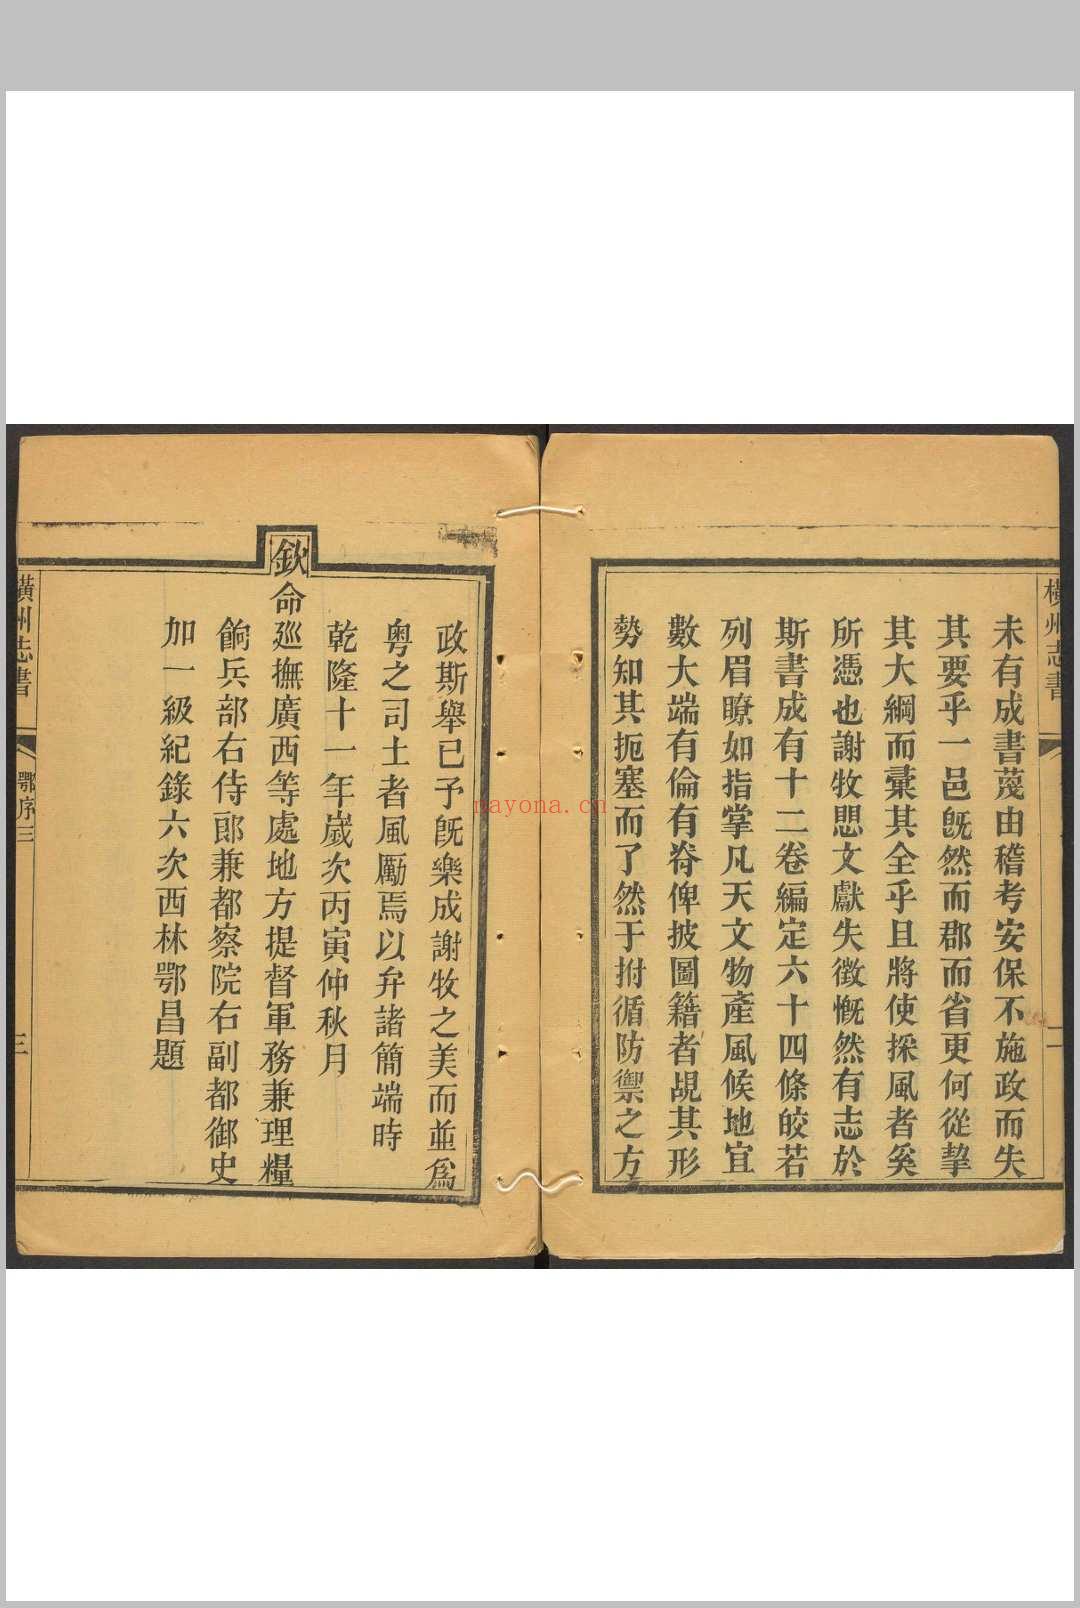 橫州志書
二
未有成書蔑由稽考安保不施政而失
其要乎一邑既然而郡而省更何從挈
其大綱而彙其全乎且將使採風者奚
所憑也謝牧愳文獻失徵慨然有志於
斯書成有十二卷編定六十四條皎若
列眉瞭如指掌凡天文物產風候地宜
數大端有倫有脊俾披圖籍者覘其形
勢知其扼塞而了然于拊循防禦之方
政斯舉已予旣樂成謝牧之美而並爲
粤之司土者風厲焉以弁諸簡端時
乾隆十一年歲次丙寅仲秋月
欽命廵撫廣西等處地方提督軍務兼理糧
餉兵部右侍郎兼都察院右副都御史
加一級紀錄六次西林鄂昌題
橫州志書
鄂序三
三
nayona.cn